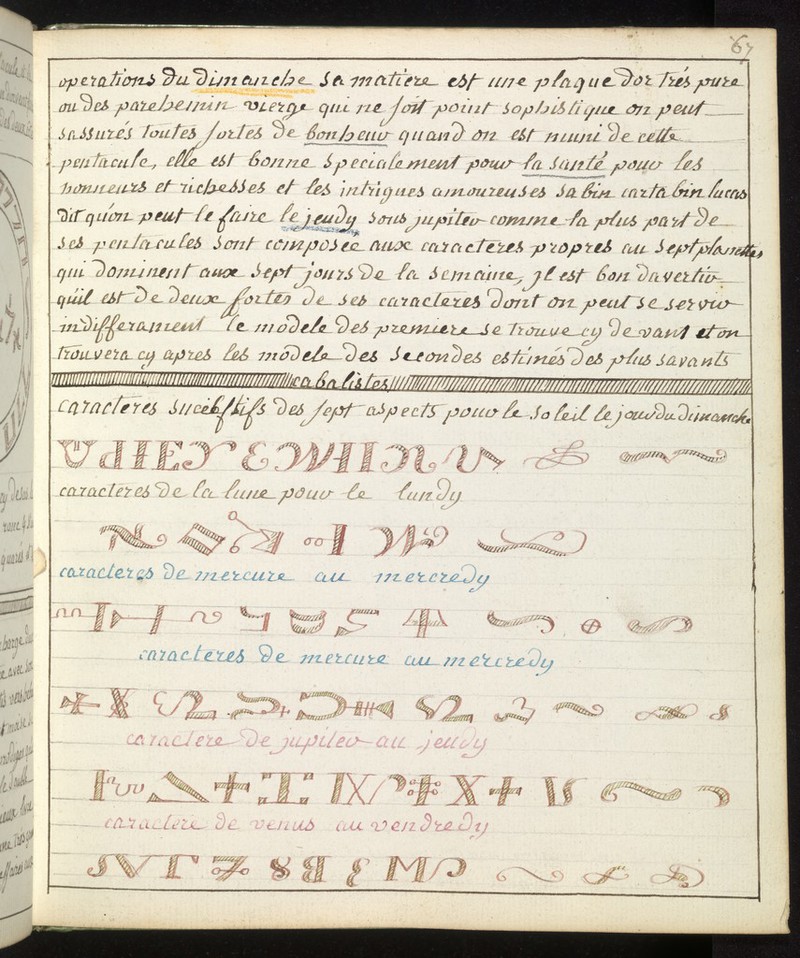 67
operations du dimanche sa matiere est une plaque dor trés pure
ou des parchemin vierge qui ne soit point sophistique on peut
sassurés toutes sortes de bonheur quand on est muni de cette
pentacule, elle est bonne specialement pour la santé pour les
honneurs et richesses et les intrigues amoureuses sabin carta bin lucas
dit quón peut le faire le jeudy sous jupiter comme la plus part de
ses pentacules sont composée aux caracteres propres au sept planettes
qui dominent aux sept jours de la semaine, jl est bon davertir
qúil est de deux sortes de ses caracteres dont on peut se servir
indifferament le modele des premiere se trouve cy devant et on
trouvera cy apres les modele des secondes estimés des plus savants
cabalistes
caracteres des sept aspects pour le soleil le jour du dimanche
caracteres de la lune pour le lundy
caracteres de mercure au mercredy
caracteres de mercure au mercredy
caractere de jupiter au jeudy
caractere de venus au vendredy